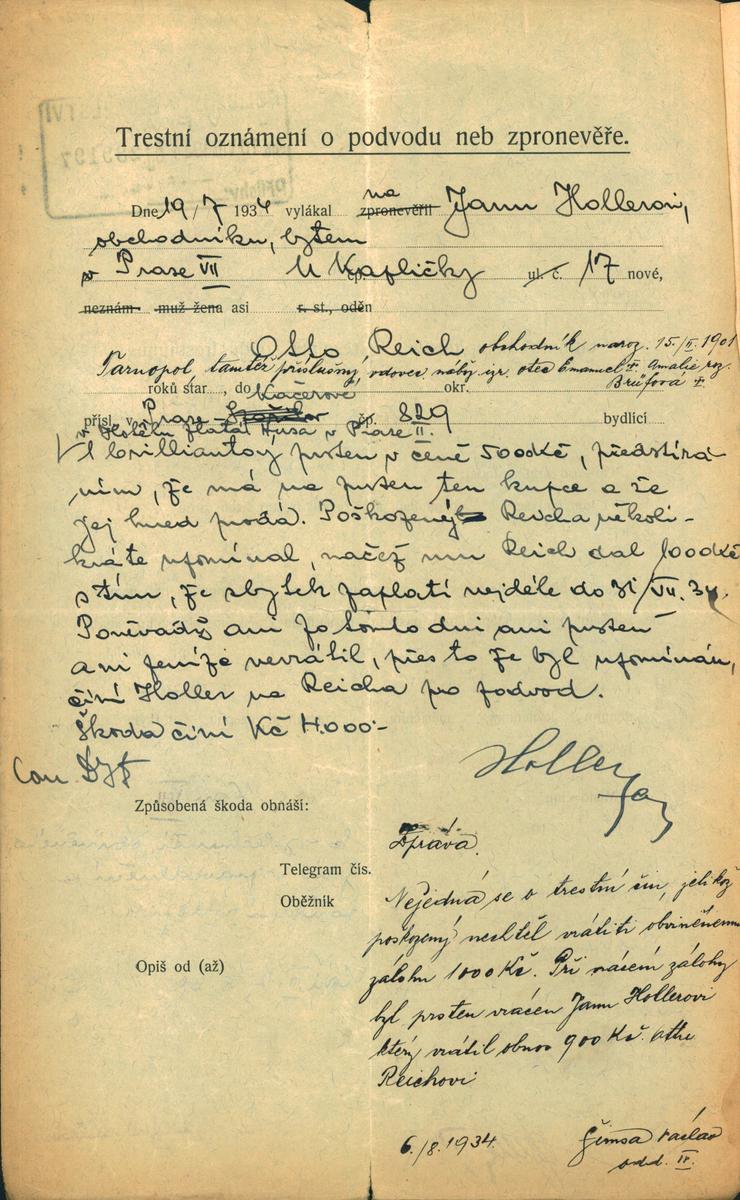 Trestní oznámení o podvodu neb zpronevěře.
Dne 19/7 1934 vylákal zpronevěřil na Janu Hollerovi,
obchodníku, bytem
v Praze VII U Kapličky čp. ul. č. 17 nové,
neznám muž žena asi r. st., oděn
Otto Reich obchodník naroz. 15/II. 1901
Tarnopol, tamtéž příslušný, vdovec nábož. izr. otec Emanuel + Amalie roz.
Brüfova +
roků star , do Kačerově okr.
přísl. v Praze čp. 829 bydlící
v Hotelu Zlatá Husa v Praze II.
1 brilliantový prsten v ceně 5000 Kč, předstírá-
ním, že má na prsten ten kupce a že
jej hned prodá. Poškozený Reicha několi-
kráte upomínal, načež mu Reich dal 1000 Kč
s tím, že zbytek zaplatí nejdéle do 31/VII. 34.
Poněvadž ani po tomto dni ani prsten
ani peníze nevrátil, přes to že byl upomínán,
činí Holler na Reicha pro podvod.
Škoda činí Kč 4.000.-
Holler
Jan
Způsobená škoda obnáší:
Zpráva.
Telegram čís.
Oběžník
Nejedná se o trestní čin, jelikož
poškozený nechtěl vrátiti obviněnému
zálohu 1000 Kč. Při vrácení zálohy
byl prsten vrácen Janu Hollerovi
který vrátil obnos 900 Kč. Otto
Reichovi
Opiš od (až)
6./8. 1934. Šimsa Václav
odd. IV.